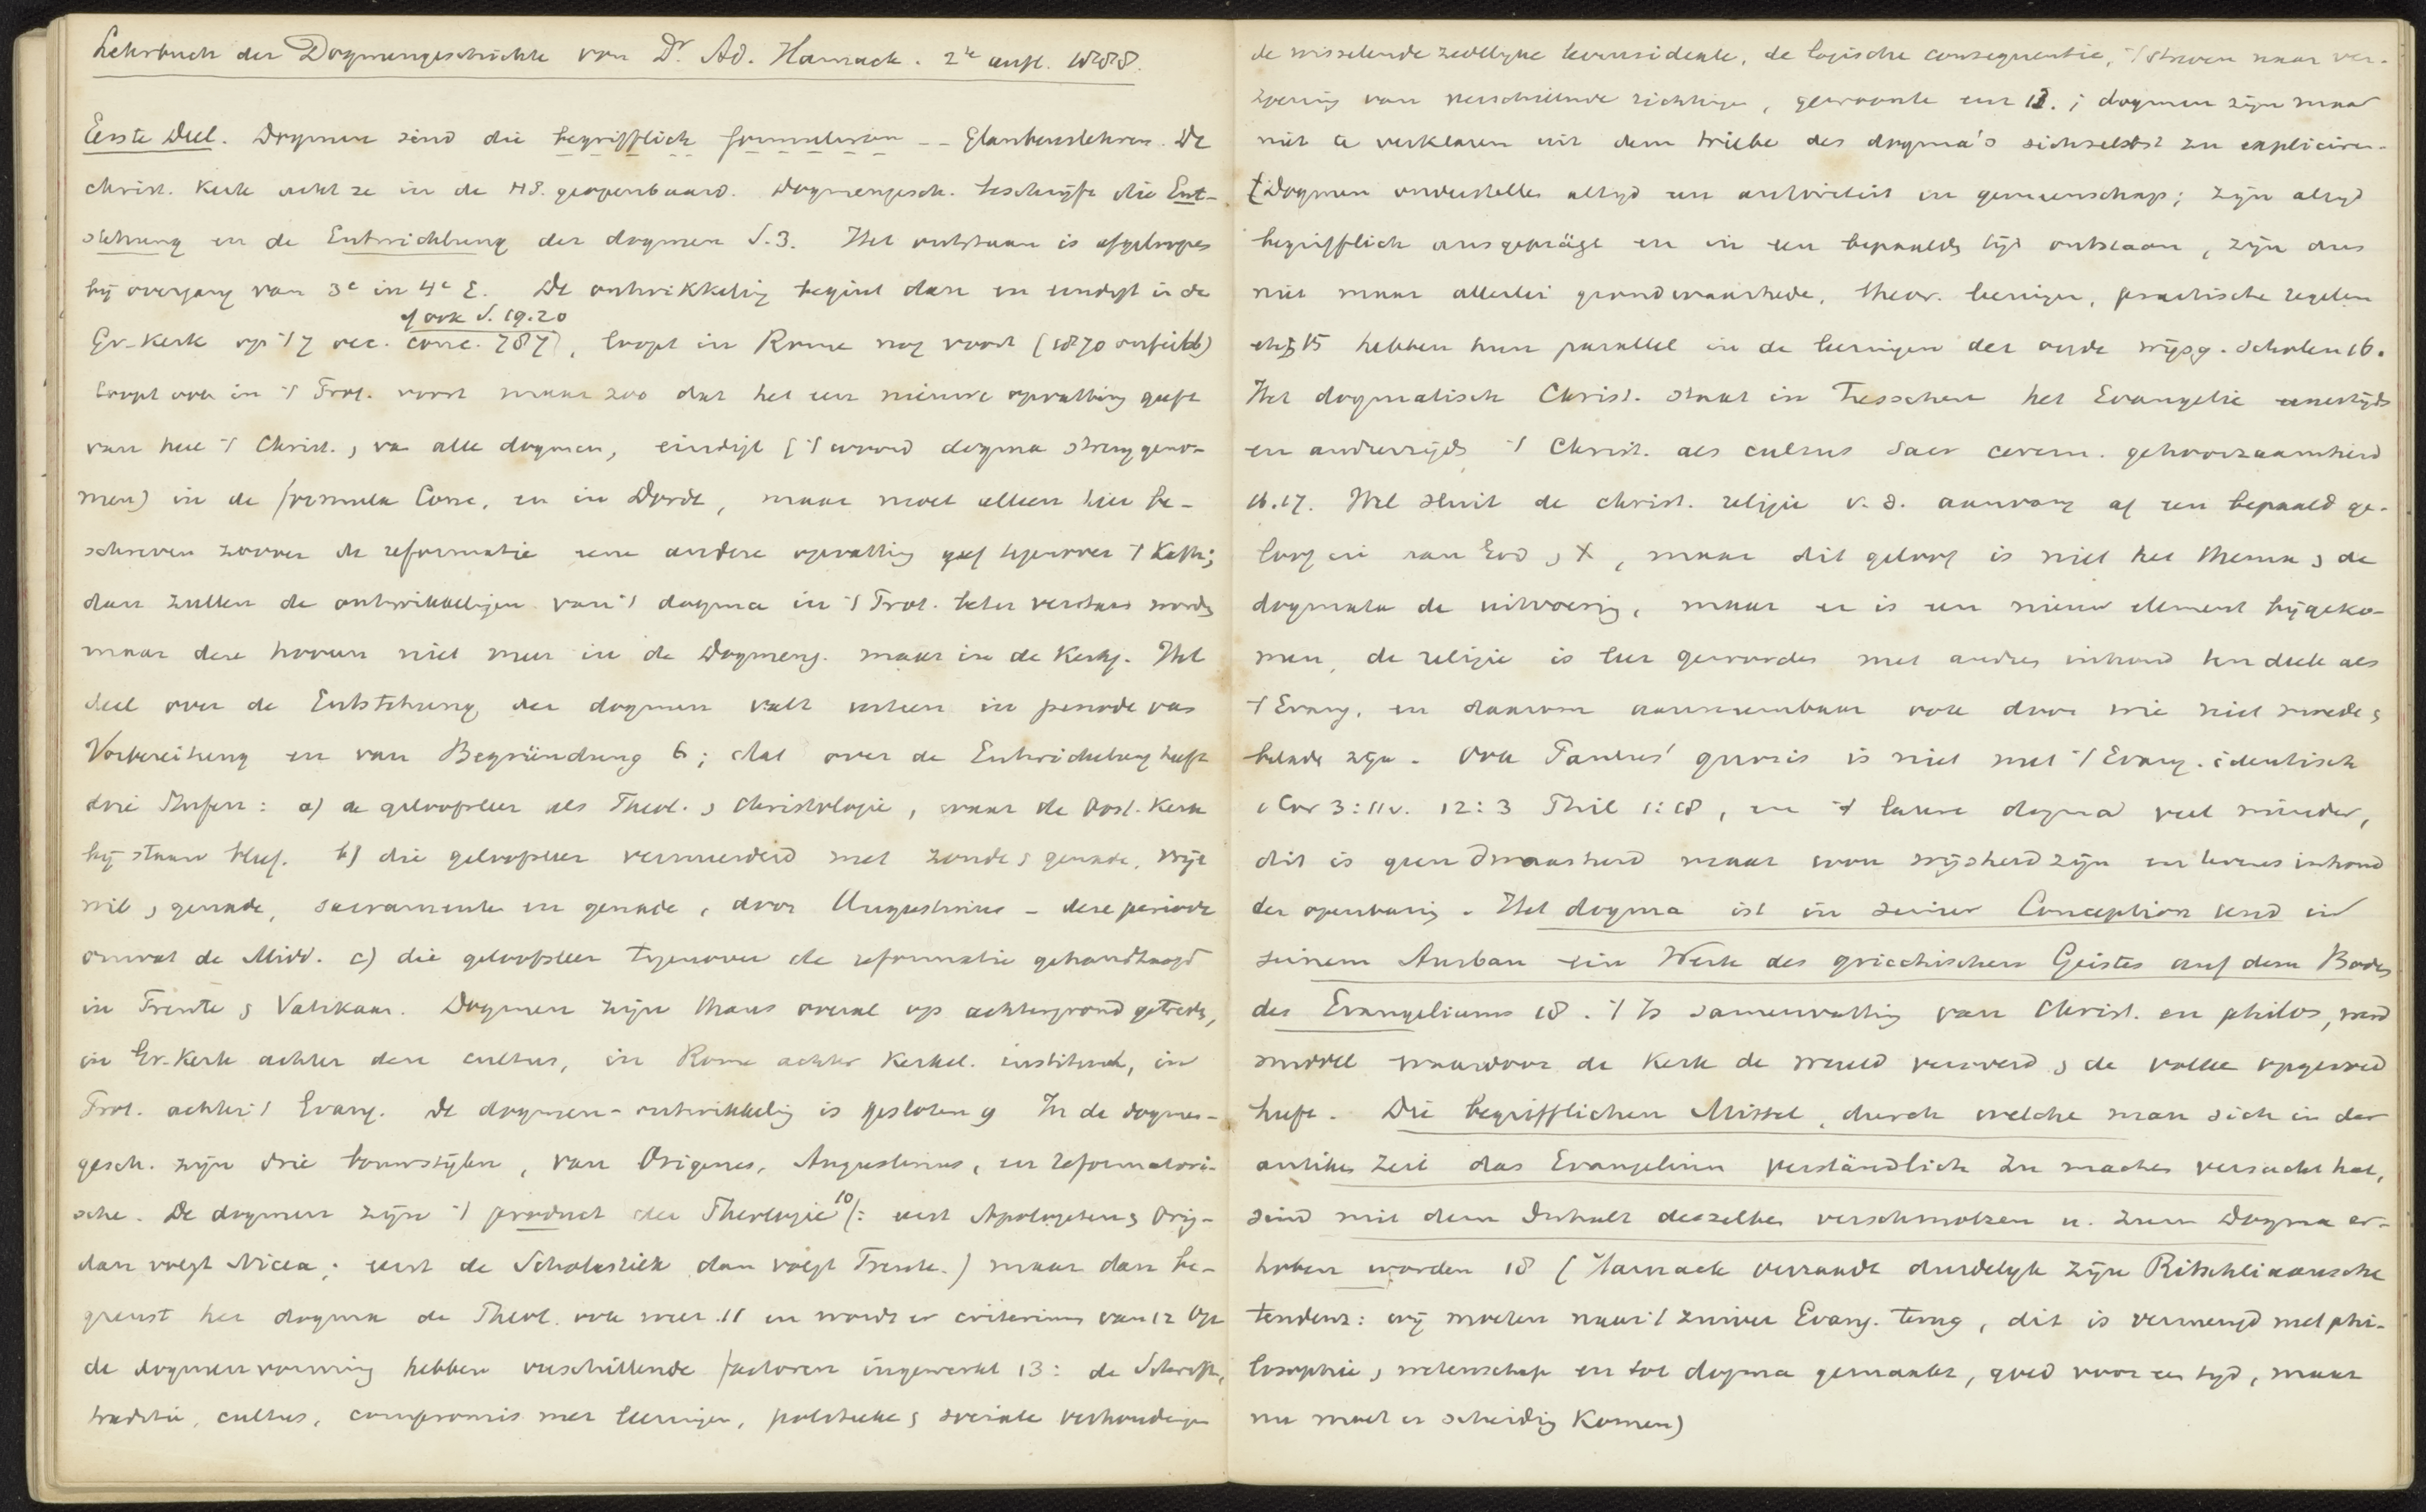 Lehrbuch der Dogmengeschichte von Dr Ad. Harnack. 2e aufl. 1888.
Eerste Deel. Dogmen sind die begrifflich formulirten -- Glaubenslehren. De
christ. kerk acht ze in de HS. geopenbaard. Dogmengesch. beschrijft die Ent-
stehung en de Entwicklung der dogmen S.3. Het ontstaan is afgeloopen
bij overgang van 3e in 4e E. De ontwikkeling begint dan en eindigt in de
of ook S. 19.20
Gr-Kerk op 't 7 oec. conc. 787), loopt in Rome nog voort (1870 onfeilb)
loopt ook in 't Prot. voort maar zoo dat het een nieuwe opvatting geeft
van heel 't Christ., van alle dogmen, eindigt ('t woord dogma streng geno-
men) in de formula Conc. en in Dordt, maar moet alleen hier be-
schreven zoover de reformatie eene andere opvatting gaf tegenover 't Kath;
dan zullen de ontwikkelingen van 't dogma in 't Prot. beter verstaan worden
maar deze hooren niet meer in de Dogmeng. maar in de Kerkg. Het
deel over de Entstehung der dogmen valt uiteen in periode van
Vorbereitung en van Begründung 6; dat over de Entwickelung heeft
drie Stufen: a) de geloofsleer als Theol. & Christologie, waar de Oost. Kerk
bij staan bleef. b) die geloofsleer vermeerderd met zonde & genade, vrije
wil & genade, sacramenten en genade, door Augustinus - deze periode
omvat de Midd. c) die geloofsleer tegenover de reformatie gehandhaafd
in Trente & Vatikaan. Dogmen zijn thans overal op achtergrond getreden,
in Gr-Kerk achter den cultus, in Rome achter Kerkel. instituut, in
Prot. achter 't Evang. De dogmen-ontwikkeling is gesloten 9 In de dogmen-
gesch. zijn drie bouwstijlen, van Origenes, Augustinus, en reformatori-
sche. De dogmen zijn 't product der Theologie 10 (: eerst Apologeten & Orig-
dan volgt Nicea; eerst de Scholastiek dan volgt Trente.) maar dan be-
grenst het dogma de Theol. ook weer 11 en wordt er criterium van 12 Op
de dogmenvorming hebben verschillende factoren ingewerkt 13: de Schrift,
traditie, cultus, compromis met leeringen, politieke & sociale verhoudingen
de wisselende zedelijke levensidealen, de logische consequentie, 't streven naar ver-
zoening van verschillende richtingen, gewoonte enz 13.; dogmen zijn maar
niet te verklaren uit dem triebe des dogma's sich selbst zu expliciren.
Dogmen onderstellen altijd een autoriteit en gemeenschap; zijn altijd
begrifflich ausgeprägt en in een bepaalden tijd ontstaan, zijn dus
niet maar allerlei grondwaarheden, theor. leeringen, practische regelen
15 hebben hun parallel in de leeringen der oude wijsg. scholen 16.
Het dogmatisch Christ. staat in tusschen het Evangelie eenerzijds
en anderzijds 't Christ. als cultus sacr cerem. gehoorzaamheid
16.17. Wel sluit de christ. religie v. d. aanvang af een bepaald ge-
loof in aan God & X, maar dit geloof is niet het thema & de
dogmata de uitvoering, maar er is een nieuw element bijgeko-
men, de religie is leer geworden met andren inhoud ten deele als
't Evang. en daarom aannembaar ook door wie niet moede &
belade zijn. Ook Paulus' gnosis is niet met 't Evang. identisch
1 Cor 3:11v. 12:3 Phil 1:18, en 't latere dogma veel minder,
dit is geen dwaasheid maar won wijsheid zijn en tevens inhoud
der openbaring. Het dogma ist in seiner Conception und in
seinem Ausbau ein Werk des griechischen Geistes auf dem Boden
des Evangeliums 18. 't Is samenvatting van Christ. en philos, werd
middel waardoor de Kerk de wereld veroverd & de volken opgevoed
heeft. Die begrifflichen Mittel, durch welche man sich in der
antiken Zeit das Evangelium verständlich zu machen versucht hat,
sind mit dem Inhalt desselben verschmolzen u. zum Dogma er-
hoben worden 18 (Harnack verraadt duidelijk zijn Ritschliaansche
tendenz: wij moeten naar 't zuiver Evang. terug, dit is vermengd met phi-
losophie & wetenschap en tot dogma gemaakt, goed voor een tijd, maar
nu moet er scheiding komen)